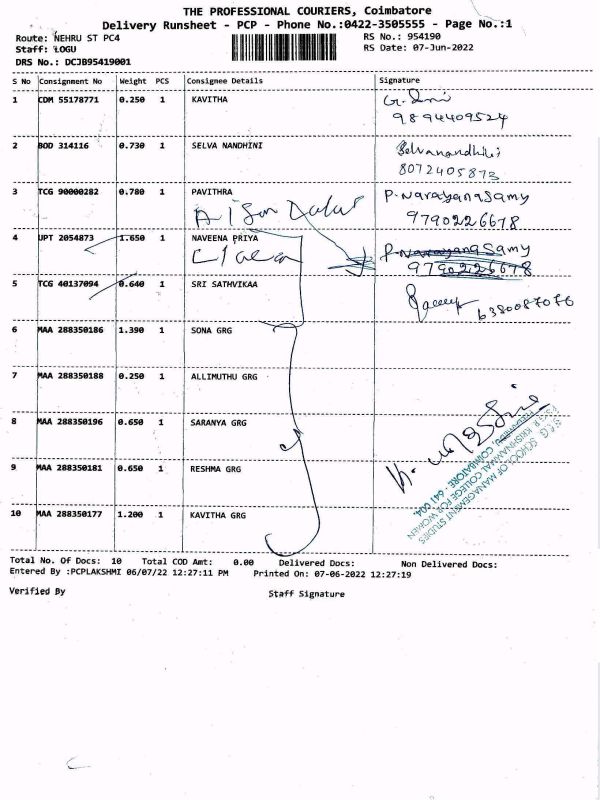 THE PROFESSIONAL COURIERS, Coimbatore
Delivery Runsheet - PCP - Phone No.:0422-3505555 - Page No.:1
Route: NEHRU ST PC4 RS No.: 954190
Staff: LOGU RS Date: 07-Jun-2022
DRS No.: DCJB95419001
S No Consignment No Weight PCS Consignee Details Signature
1 CDM 55178771 0.250 1 KAVITHA
9894409524
2 BOD 314116 0.730 1 SELVA NANDHINI Selvanandhini
8072405873
3 TCG 90000282 0.780 1 PAVITHRA P. Narayanasamy
9790226678
4 JPT 2054873 1.650 1 NAVEENA PRIYA P. Narayanasamy
9790226678
5 TCG 40137094 0.640 1 SRI SATHVIKAA
6380087076
6 MAA 288350186 1.390 1 SONA GRG
7 MAA 288350188 0.250 1 ALLIMUTHU GRG
8 MAA 288350196 0.650 1 SARANYA GRG
9 MAA 288350181 0.650 1 RESHMA GRG
10 MAA 288350177 1.200 1 KAVITHA GRG
SCHOOL OF MANAGEMENT STUDIES
KRISHNAMMAL COLLEGE FOR WOMEN
COIMBATORE - 641 004.
Total No. Of Docs: 10 Total COD Amt: 0.00 Delivered Docs: Non Delivered Docs:
Entered By :PCPLAKSHMI 06/07/22 12:27:11 PM Printed On: 07-06-2022 12:27:19
Verified By Staff Signature